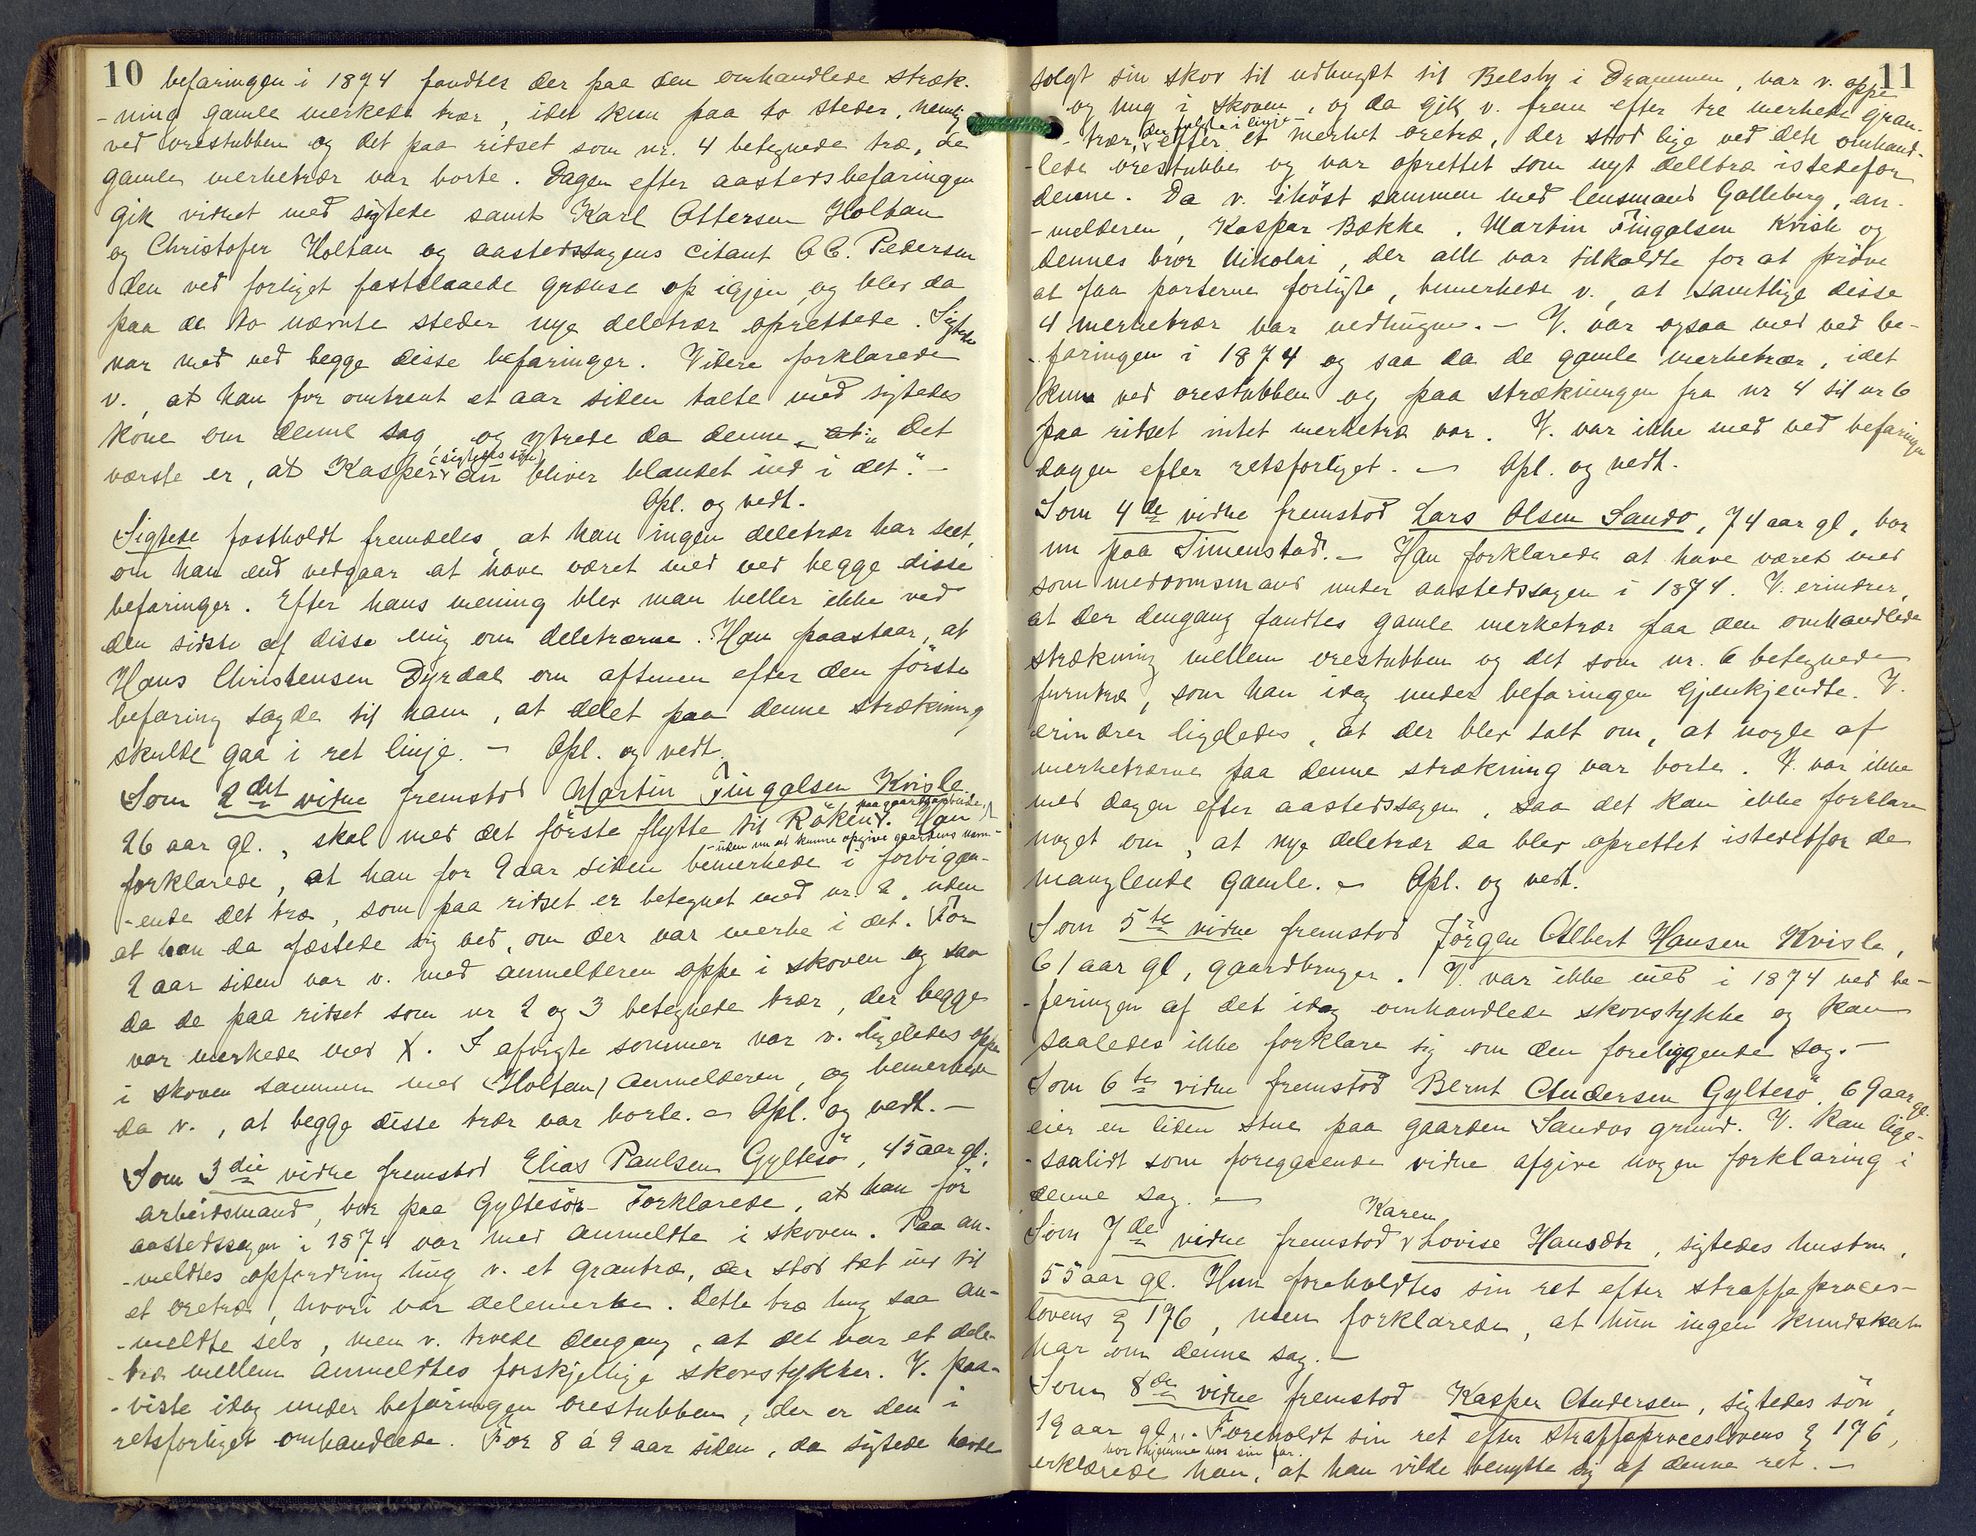 10
befaringen i 1874 fandtes der paa den omhandlede stræk-
-ning gamle merkede trær, idet kun paa to steder, nemlig
ved orestubben og det paa ridset som nr. 4 betegnede træ, de
gamle merketrær var borte. Dagen efter aastedsbefaringen
gik vidnet med sigtede samt Karl Ottersen Holtan
og Christofer Holtan og aastedssagens citant O. C. Pedersen
den ved forliget fastslaaede grænse op igjen, og blev da
paa de to nævnte steder nye deletrær oprettede. Sigtede
var med ved begge disse befaringer. Videre forklarede
v., at han for omtrent et aar siden talte med sigtedes
kone om denne sag, og ytrede da denne, at: "Det
værste er, at Kasper (sigtedes søn) bliver blandet ind i det." -
Opl. og vedt.
Sigtede fastholdt fremdeles, at han ingen deletrær har seet,
om han end vedgaar at have været med ved begge disse
befaringer. Efter hans mening blev man heller ikke ved
den sidste af disse enig om deletrærne. Han paastaar, at
Hans Christensen Dyrdal om aftenen efter den første
befaring sagde til ham, at delet paa denne strækning
skulde gaa i ret linje. - Opl. og vedt.
Som 2det vidne fremstod Martin Fingalsen Kvisle
26 aar gl., skal med det første flytte til Röken paa gaardsarbeide,
- uden nu at kunne opgive gaardens navn - Han
forklarede, at han for 2 aar siden bemerkede i forbigaa-
-ende det træ, som paa ridset er betegnet med nr. 2, uden
at han da fæstede sig ved, om der var merke i det. For
2 aar siden var v. med anmelderen oppe i skoven og saa
da de paa ridset som nr 2 og 3 betegnede trær, der begge
var merkede med X. I afvigte sommer var v. ligeledes oppe
i skoven sammen med (Holtan) anmelderen, og bemerkede
da v., at begge disse trær var borte. - Opl. og vedt. -
Som 3die vidne fremstod Elias Paulsen Gyltesö, 45 aar gl.,
arbeidsmand, bor paa Gyltesö - Forklarede, at han för
aastedssagen i 1874 var med anmeldte i skoven. Paa an-
-meldtes opfordring hug v. et grantræ, der stod tæt ind til
et oretræ, hvori var delemerke. Dette træ hug saa an-
-meldte selv, men v. troede dengang, at det var et dele-
-træ mellem anmeldtes forskjellige skovstykker. V. paa-
-viste idag under befaringen orestubben, der er den i
retsforliget omhandlede. For 8 á 9 aar siden, da sigtede havde
11
solgt sin skov til udhugst til Belsby i Drammen, var v. oppe
og hug i skoven, og da gik v. frem efter tre merkede gran-
- trær, der fulgte i linje - efter et merket oretræ, der stod lige ved den omhand-
-lede orestubbe og var oprettet som nyt deletræ istedefor
denne. Da v. ihöst sammen med lensmand Galleberg, an-
-melderen, Kaspar Bække, Martin Fingalsen Kvisle og
dennes bror Nikolai, der alle var tilkaldte for at pröve
at faa parterne forligte, bemerkede v., at samtlige disse
4 merketrær var nedhugne. - V. var ogsaa med ved be-
-faringen i 1874 og saa da de gamle merketrær, idet
kun ved orestubben og paa strækningen fra nr 4 til nr 6
paa ridset intet merketræ var. V. var ikke med ved befaringen
dagen efter retsforliget. - Opl. og vedt.
Som 4de vidne fremstod Lars Olsen Sando, 74 aar gl, bor
nu paa Simenstad. - Han forklarede at have været med
som meddomsmand under aastedssagen i 1874. V. erindrer,
at der dengang fandtes gamle merketrær paa den omhandlede
strækning mellem orestubben og det som nr. 6 betegnede
furutræ, som han idag under befaringen gjenkjendte. V.
erindrer ligeledes, at der blev talt om, at nogle af
merketrærne paa denne strækning var borte. V. var ikke
med dagen efter aastedssagen, saa det kan ikke forklare
noget om, at nye deletrær da blev oprettet istedetfor de
manglende gamle. - Opl. og vedt.
Som 5te vidne fremstod Jörgen Albert Hansen Kvisle,
61 aar gl, gaardbruger. V. var ikke med i 1874 ved be-
-faringen af det idag omhandlede skovstykke og kan
saaledes ikke forklare sig om den foreliggende sag. -
Som 6te vidne fremstod Bernt Andersen Gyltesö, 69 aar gl.
eier en liden stue paa gaarden Sandos grund. V. kan lige-
-saalidt som foregaaende vidne afgive nogen forklaring i
denne sag. -
Som 7de vidne fremstod Karen Lovise Hansdtr, sigtedes hustru,
55 aar gl. Hun foreholdtes sin ret efter straffeproces-
lovens § 176, men forklarede, at hun ingen kundskab
har om denne sag. -
Som 8de vidne fremstod Kasper Andersen, sigtedes sön,
19 aar gl., bor hjemme hos sin far. Foreholdt sin ret efter straffeproceslovens § 176,
erklærede han, at han vilde benytte sig af denne ret. -